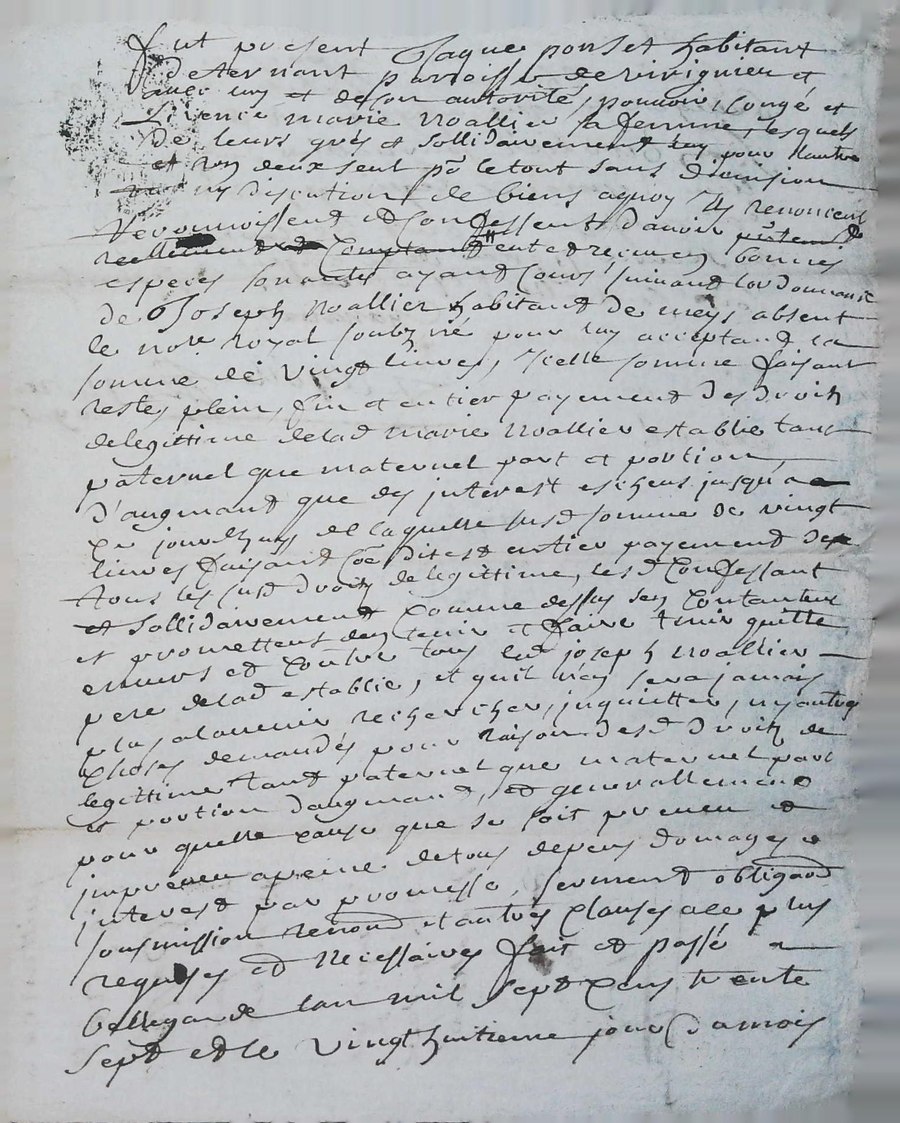 fut present Jaque ponset habitant
de ternant parroisse de virignieu et
avec luy et de son autorité, pouvoir, congé et
Licence marie Noallier sa femme, lesquels
de leurs grés et sollidairement luy pour l'autre
et un deux seul po le tout sans division
ny discution de biens aquoy Ils renoncent
Reconnoissent et Confessent d'avoir
reellement et Comptant eu et reçeu en bonnes
especes sonantes ayant Cours suivant lordonnance
de Joseph Noallier habitant de meys absent
le nore royal soubzné pour luy acceptant la
somme de vingt livres, Icelle somme faisant
restes plein, fin et entier payement des droits
de legittime de lad marie Noallier establie tant
paternel que maternel part et portion
d'augmant que des interest escheus jusqua
Ce jourdhuy de laquelle susd somme de vingt
livres faisant Coe dit est entier payement de
tous les susd droits de legittime, lesd Confessant
et sollidairement Comme dessus sen Contantent
et promettent den tenir et faire tenir quitte
envers et Contre tous led joseph Noallier
pere de lad establie, et quil n'en sera jamais
plus alavenir rechercher, inquietter, ny autres
Choses demandés pour Raison desd droits de
legittime tant paternel que maternel part
et portion daugmant, et generallement
pour quelle cause que se soit preveu et
impreveu apeine de tous depens domages et
interest par promesse, serment obligaon
sousmission renon et autres Clauses ace plus
requises et Necessaires fait et passé a
bellegarde lan mil sept Cens trente
sept et le vingt huitieme jour du mois